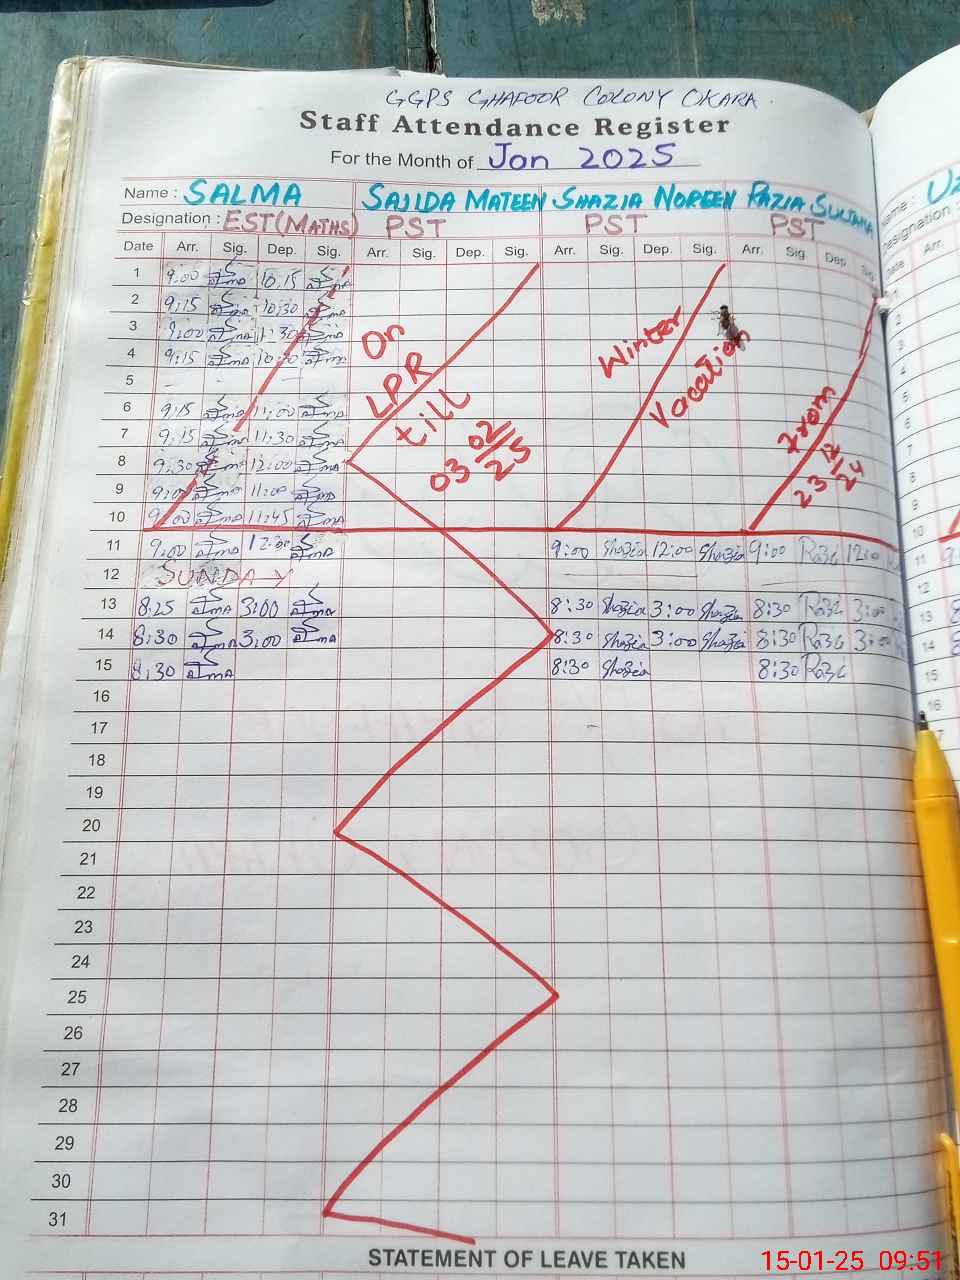 GGPS GHAFOOR COLONY OKARA.
Staff Attendance Register
For the Month of Jan 2025
Name : SALMA SAJIDA MATEEN SHAZIA NOREEN RAZIA SULTANA
Designation : EST(MATHS) PST PST PST
Date Arr. Sig. Dep. Sig. Arr. Sig. Dep. Sig. Arr. Sig. Dep. Sig. Arr. Sig. Dep. Sig.
1 9:00 10:15
2 9:15 10:30
3 9:00 11:30
4 9:15 10:30
5
6 9:15 11:00
7 9:15 11:30
8 9:30 12:00
9 9:00 11:00
10 9:00 11:45
On
LPR
till
03 02/25
Winter
Vacation
From
23 12/24
11 9:00 12:00 9:00 Shazia 12:00 Shazia 9:00 Razi 12:00
12 SUNDAY
13 8:25 3:00 8:30 Shazia 3:00 Shazia 8:30 Razi 3:00
14 8:30 3:00 8:30 Shazia 3:00 Shazia 8:30 Razi 3:00
15 8:30 8:30 Shazia 8:30 Razi
16
17
18
19
20
21
22
23
24
25
26
27
28
29
30
31
STATEMENT OF LEAVE TAKEN
15-01-25 09:51
Name :
Designation :
Date Arr.
1
2
3
4
5
6
7
8
9
10
11
12
13
14
15
16